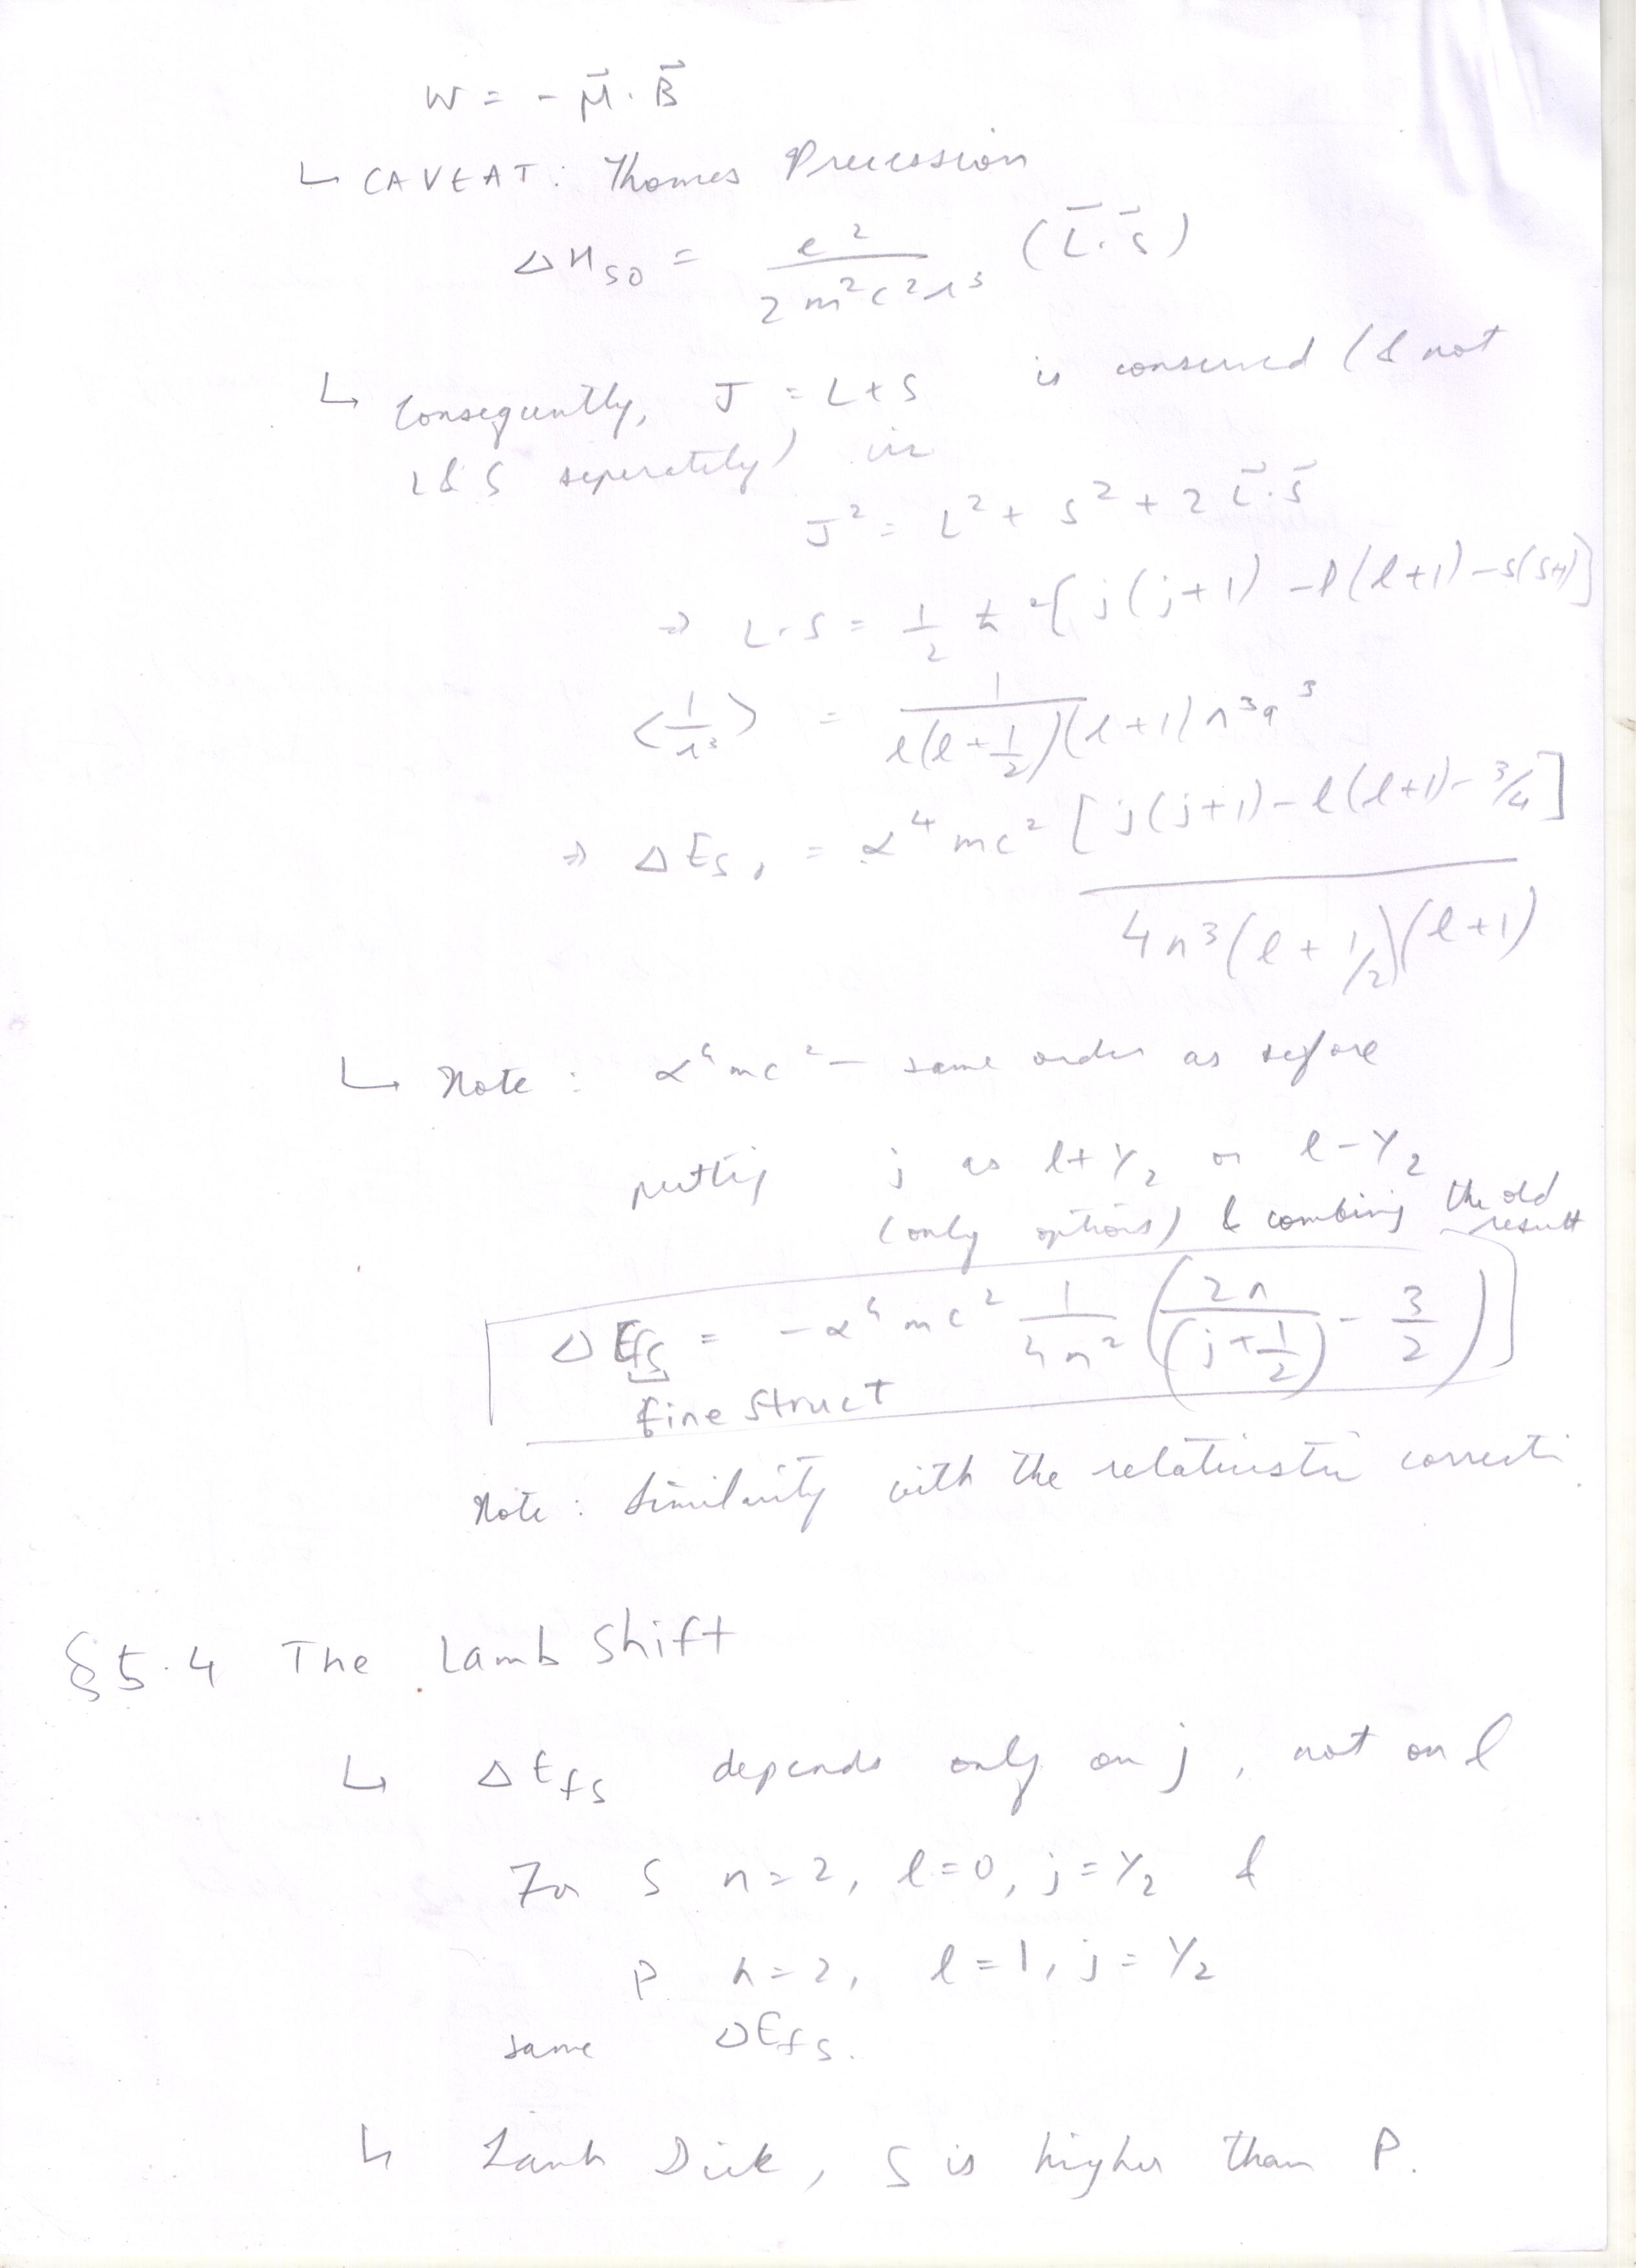 W = - μ⃗ · B⃗
↳ CAVEAT: Thomas Precession
ΔH_SO = e² / 2m²c²r³ (L⃗·S⃗)
↳ Consequently, J = L+S is conserved (& not
L & S seperately) in
J² = L² + S² + 2 L⃗·S⃗
⇒ L·S = 1/2 ħ² [j(j+1) - l(l+1) - s(s+1)]
<1/r³> = 1 / l(l+1/2)(l+1) n³a³
⇒ ΔE_S, = α⁴mc² [j(j+1) - l(l+1) - 3/4] / 4n³(l+1/2)(l+1)
↳ Note: α⁴mc² — same order as before
putting j as l+1/2 or l-1/2
(only options) & combing the old result
ΔE_fs = -α⁴mc² 1/4n² (2n/(j+1/2) - 3/2)
fine struct
Note: Similarity with the relativistic correcti.
§5.4 The Lamb Shift
↳ ΔE_fs depends only on j, not on l
For S n=2, l=0, j=1/2 &
P n=2, l=1, j=1/2
same ΔE_fs.
↳ Lamb, S is higher than P.